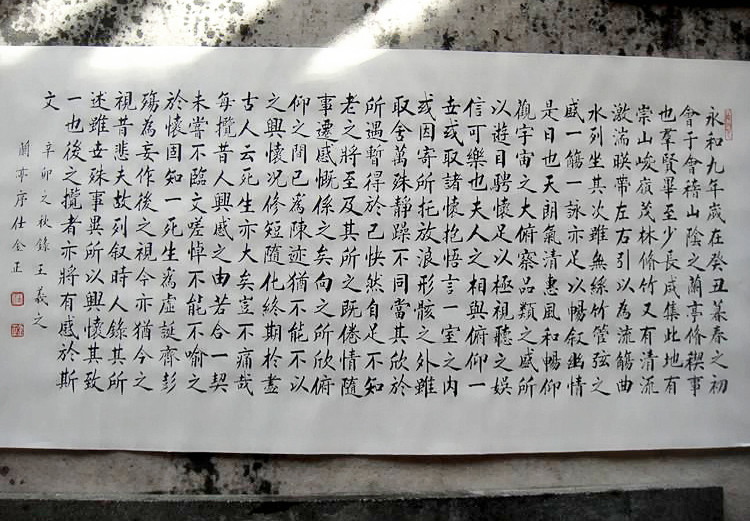 永和九年歲在癸丑暮春之初
會于會稽山陰之蘭亭脩稧事
也羣賢畢至少長咸集此地有
崇山峻嶺茂林脩竹又有清流
激湍暎帶左右引以為流觴曲
水列坐其次雖無絲竹管弦之
盛一觴一詠亦足以暢叙幽情
是日也天朗氣清惠風和暢仰
觀宇宙之大俯察品類之盛所
以遊目騁懷足以極視聽之娛
信可樂也夫人之相與俯仰一
世或取諸懷抱悟言一室之内
或因寄所托放浪形骸之外雖
取舍萬殊靜躁不同當其欣於
所遇暫得於己快然自足不知
老之將至及其所之既倦情隨
事遷感慨係之矣向之所欣俯
仰之間已為陳迹猶不能不以
之興懷况修短隨化終期於盡
古人云死生亦大矣豈不痛哉
每攬昔人興感之由若合一契
未嘗不臨文嗟悼不能不喻之
於懷固知一死生為虛誕齊彭
殤為妄作後之視今亦猶今之
視昔悲夫故列叙時人錄其所
述雖世殊事異所以興懷其致
一也後之攬者亦將有感於斯
文
辛卯之秋錄王羲之
蘭亭序仕金正